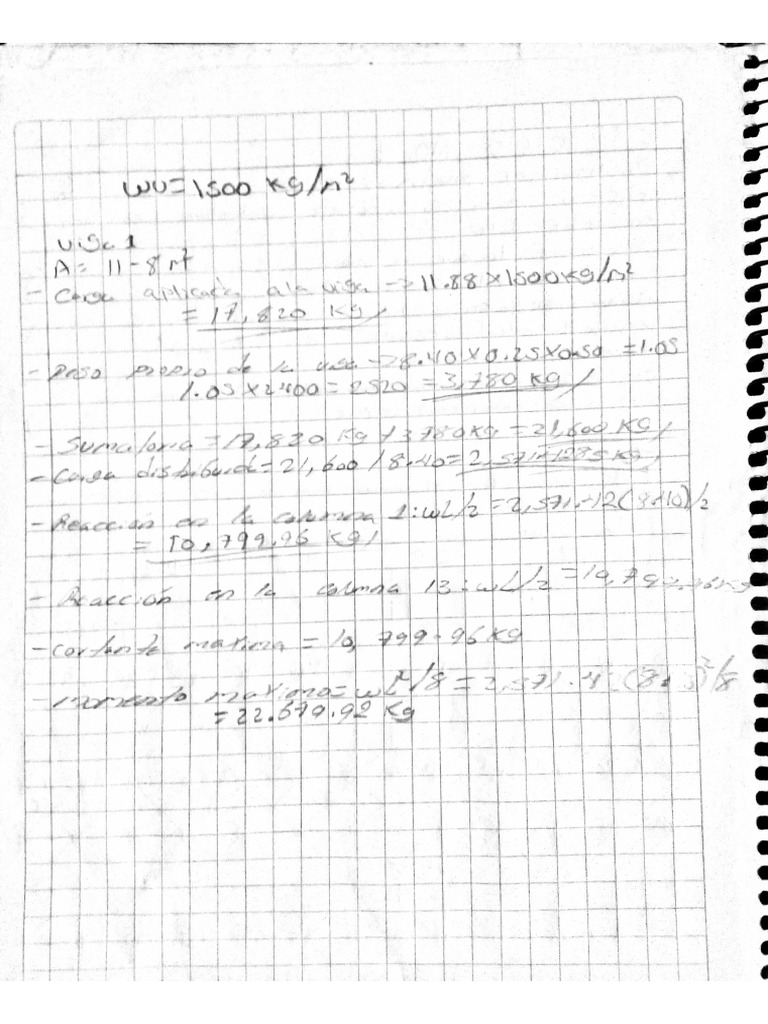 WU=1500 Kg/m²
Viga 1
A= 11-8 m²
- Carga aplicada a la viga → 11.88 x 1500 Kg/m²
= 17,820 Kg/
- peso propio de la viga → 8.40 x 0.25 x 0.50 = 1.05
1.05 x 2400 = 2520 = 3,780 Kg/
- Sumatoria = 17,820 Kg + 3780 Kg = 21,600 Kg/
- Carga distribuida = 21,600 / 8.40 = 2,571.
- Reacción en la columna 1: wL/2 = 2,571.42(8.40)/2
= 10,799.96 Kg/
- Reacción en la columna 13: wL/2 =
- cortante maxima = 10,799.96 Kg
- momento maximo = wL²/8 =
= 22.679.92 Kg